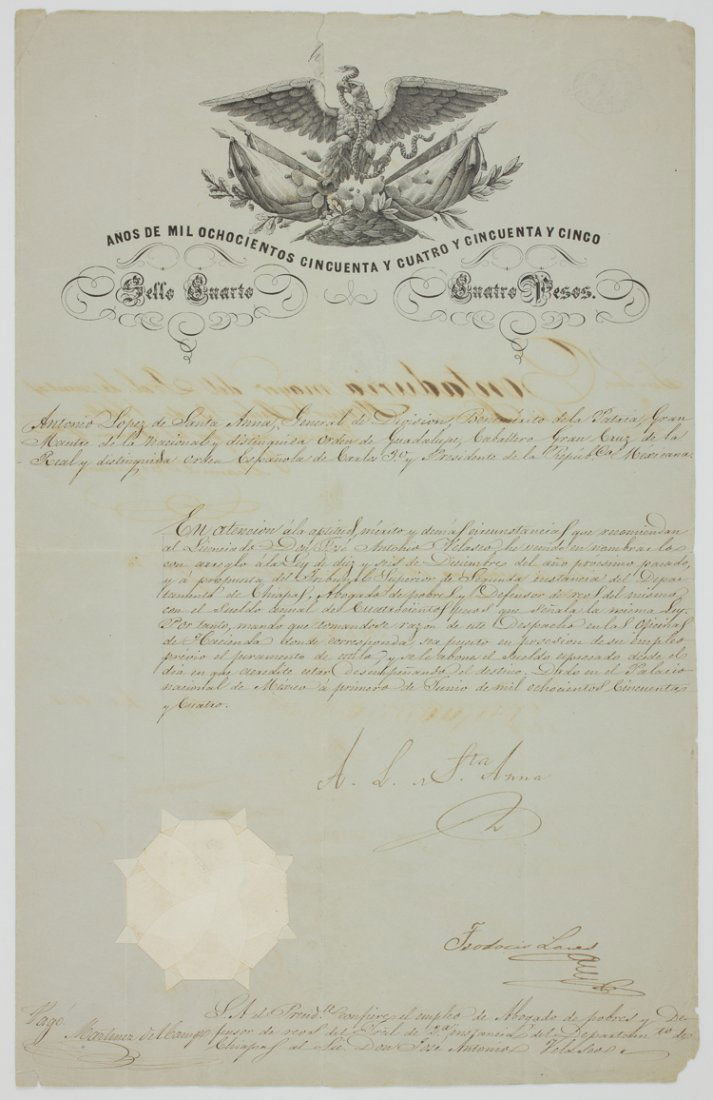 ANOS DE MIL OCHOCIENTOS CINCUENTA Y CUATRO Y CINCUENTA Y CINCO
Sello Cuarto
Cuatro Pesos.
Antonio Lopez de Santa Anna, General de Division, Benemérito de la Patria, Gran
Maestre de la nacional y distinguida orden de Guadalupe, Caballero Gran Cruz de la
Real y distinguida orden Española de Carlos 3º y Presidente de la Repúbca Mexicana.
En atencion á la aptitud, mérito y demás circunstancias que recomiendan
al Licenciado Don José Antonio Velasco, he venido en nombrarlo
con arreglo á la Ley de diez y seis de Diciembre del año próximo pasado,
y á propuesta del Tribunal Superior de Segunda instancia del Depar-
tamento de Chiapas, Abogado de pobres y Defensor de reos del mismo,
con el Sueldo anual de Cuatrocientos pesos que señala la misma Ley.
Por tanto, mando que tomandose razon de este Despacho en las Oficinas
de Hacienda donde corresponda sea puesto en posesion de su empleo
prévio el juramento de estilo, y se le abone el sueldo espresado desde el
dia en que acredite estar desempeñando el destino. Dado en el Palacio
nacional de México á primero de Junio de mil ochocientos Cincuenta
y Cuatro.
A. L. de Sta Anna
Teodocio Lares
Pagó.
Martinez del Campo
S. A. el Presidte confiere el empleo de Abogado de pobres y De-
fensor de reos del Tral de 2ª instancia del Departamto de
Chiapas al Lic. Don José Antonio Velasco.